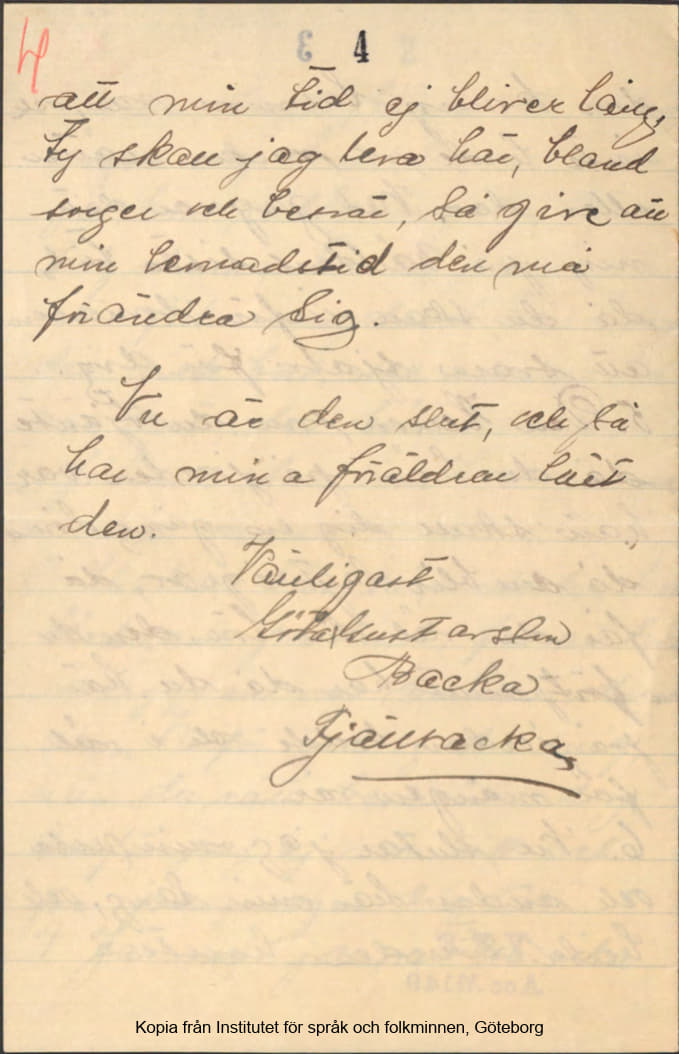 4
4
att min tid ej bliver lång,
Ty skall jag leva här, bland
sorger och besvär, så give att
min levnadstid den må
förändra Sig.
Nu är den slut, och så
har mina föräldrar lärt
den.
Vänligast
Göta Gustavsson
Backa
Fjällbacka
Kopia från Institutet för språk och folkminnen, Göteborg